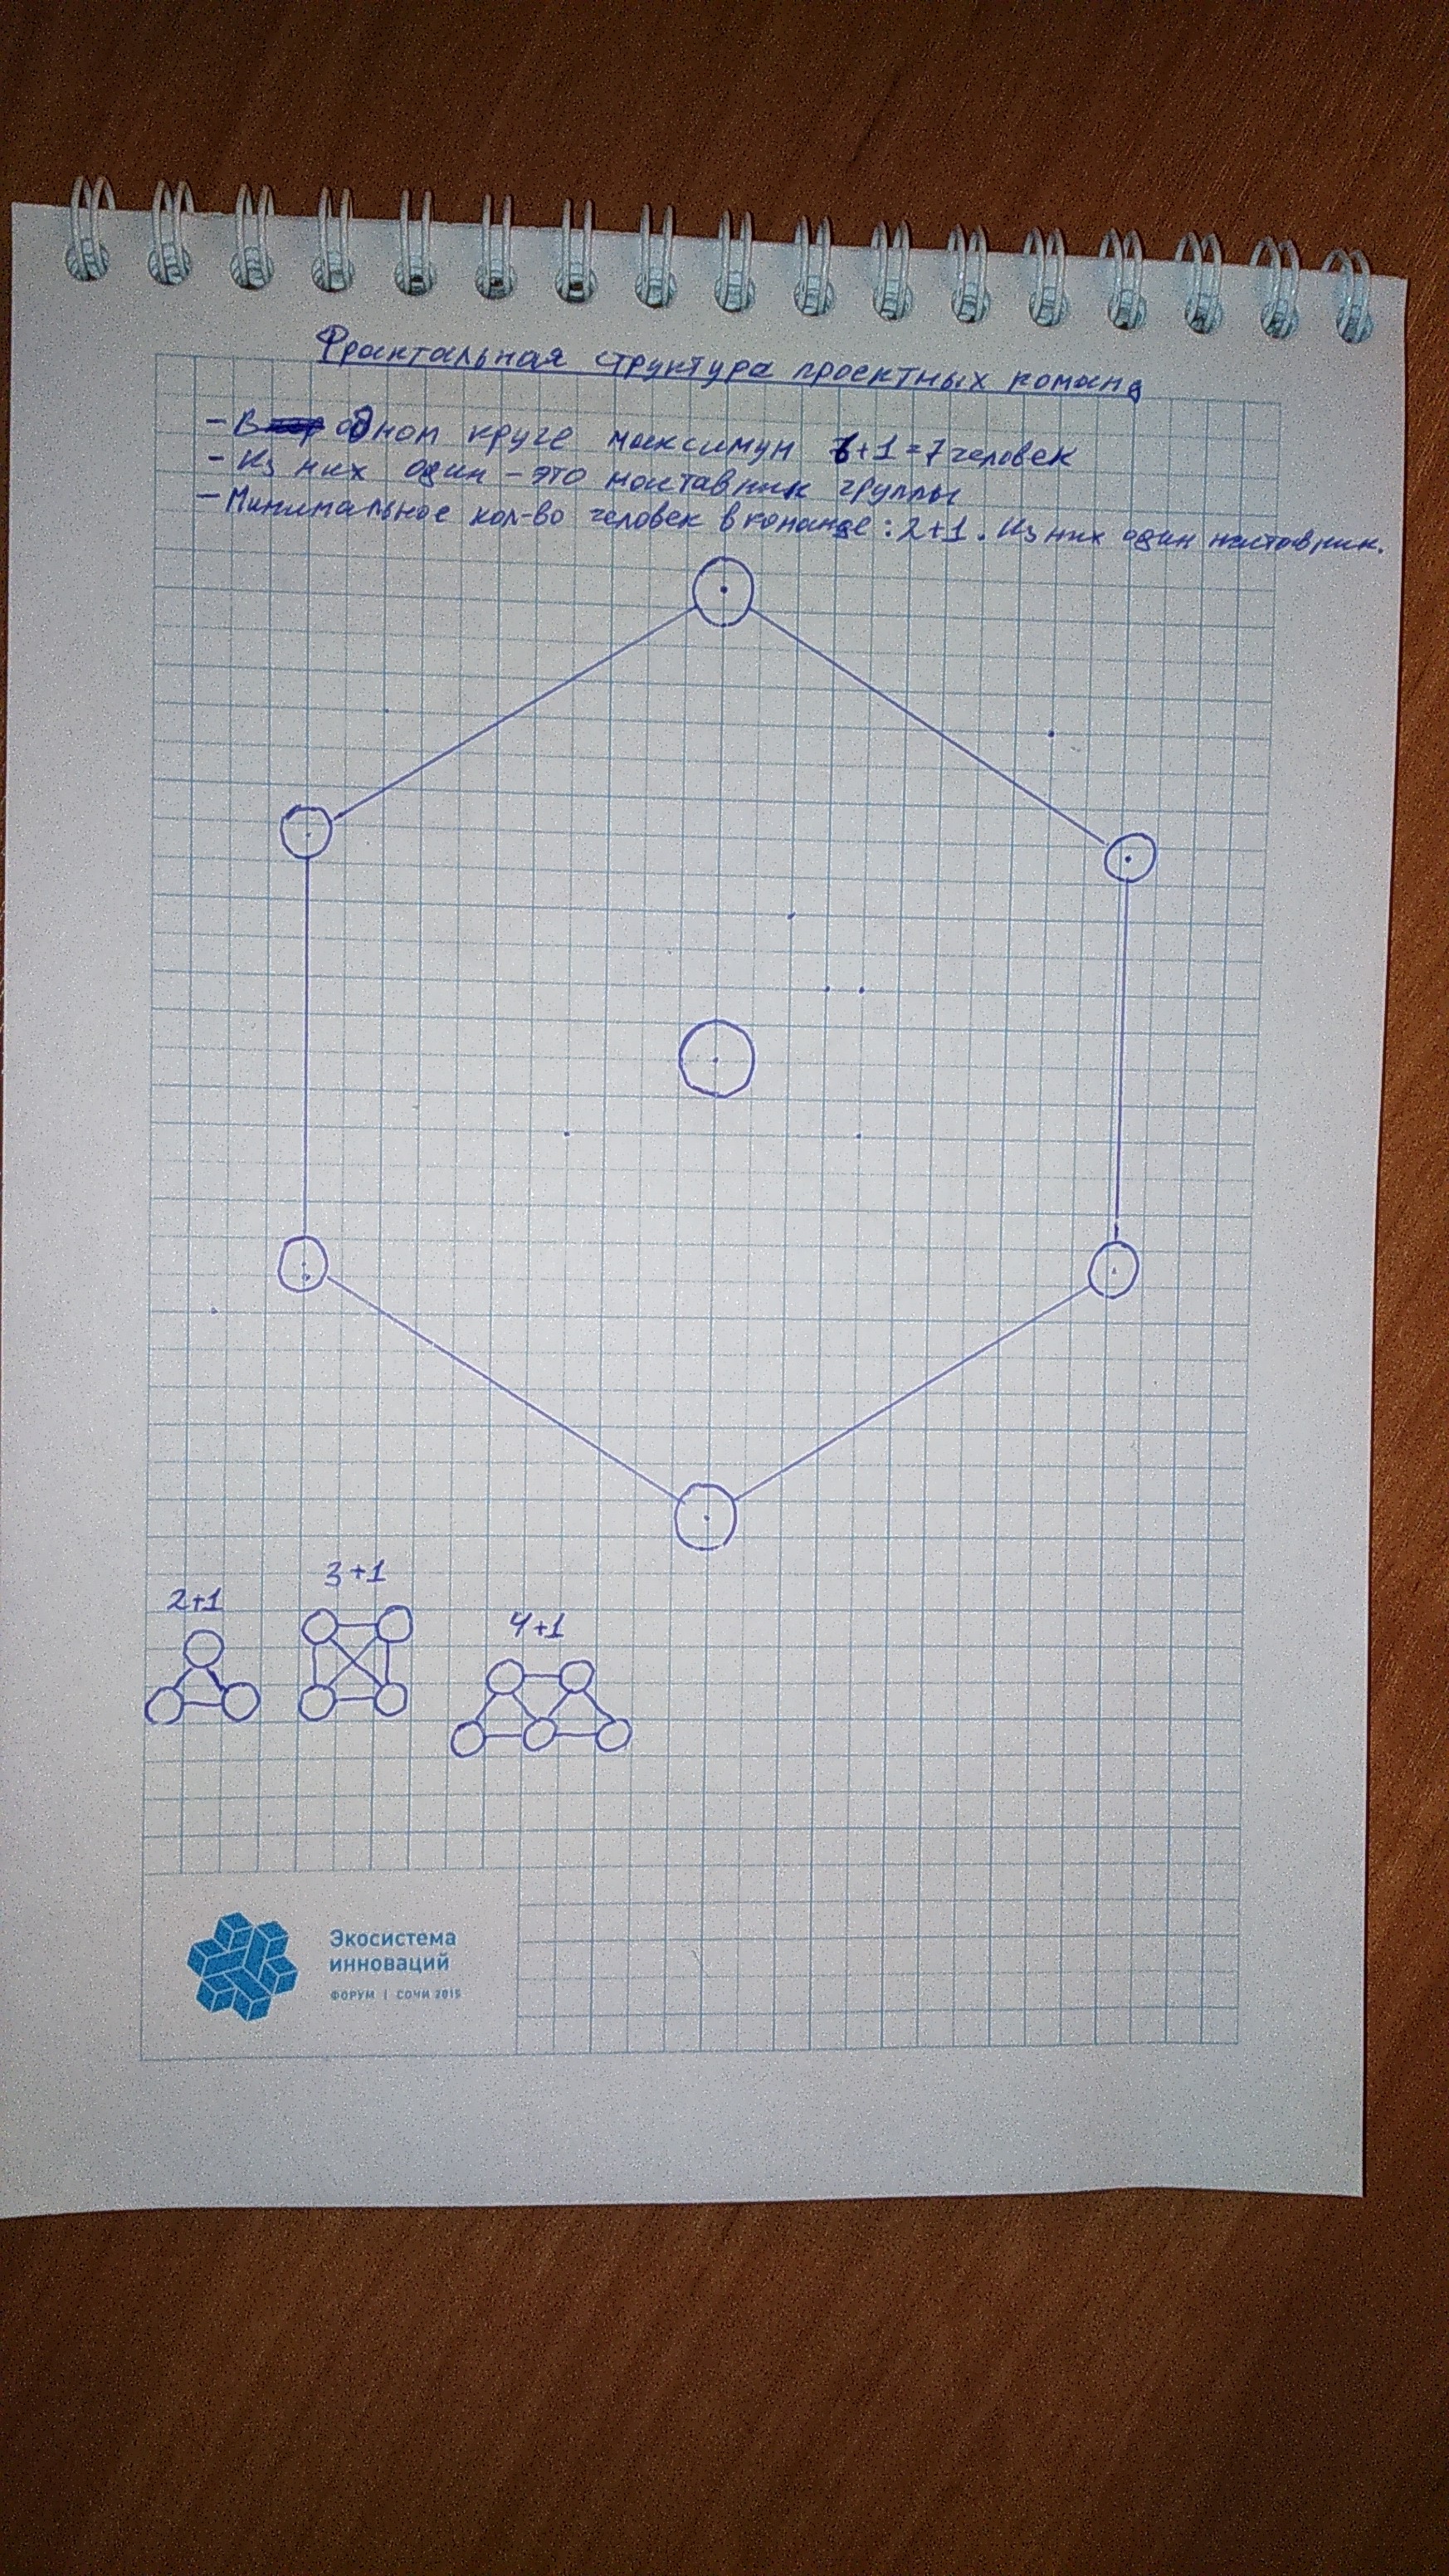 Фрактальная структура проектных команд
- В одном круге максимум 6+1=7 человек
- Из них один - это наставник группы
- Минимальное кол-во человек в команде: 2+1. Из них один наставник.
2+1
3+1
4+1
Экосистема
инноваций
ФОРУМ | СОЧИ 2015